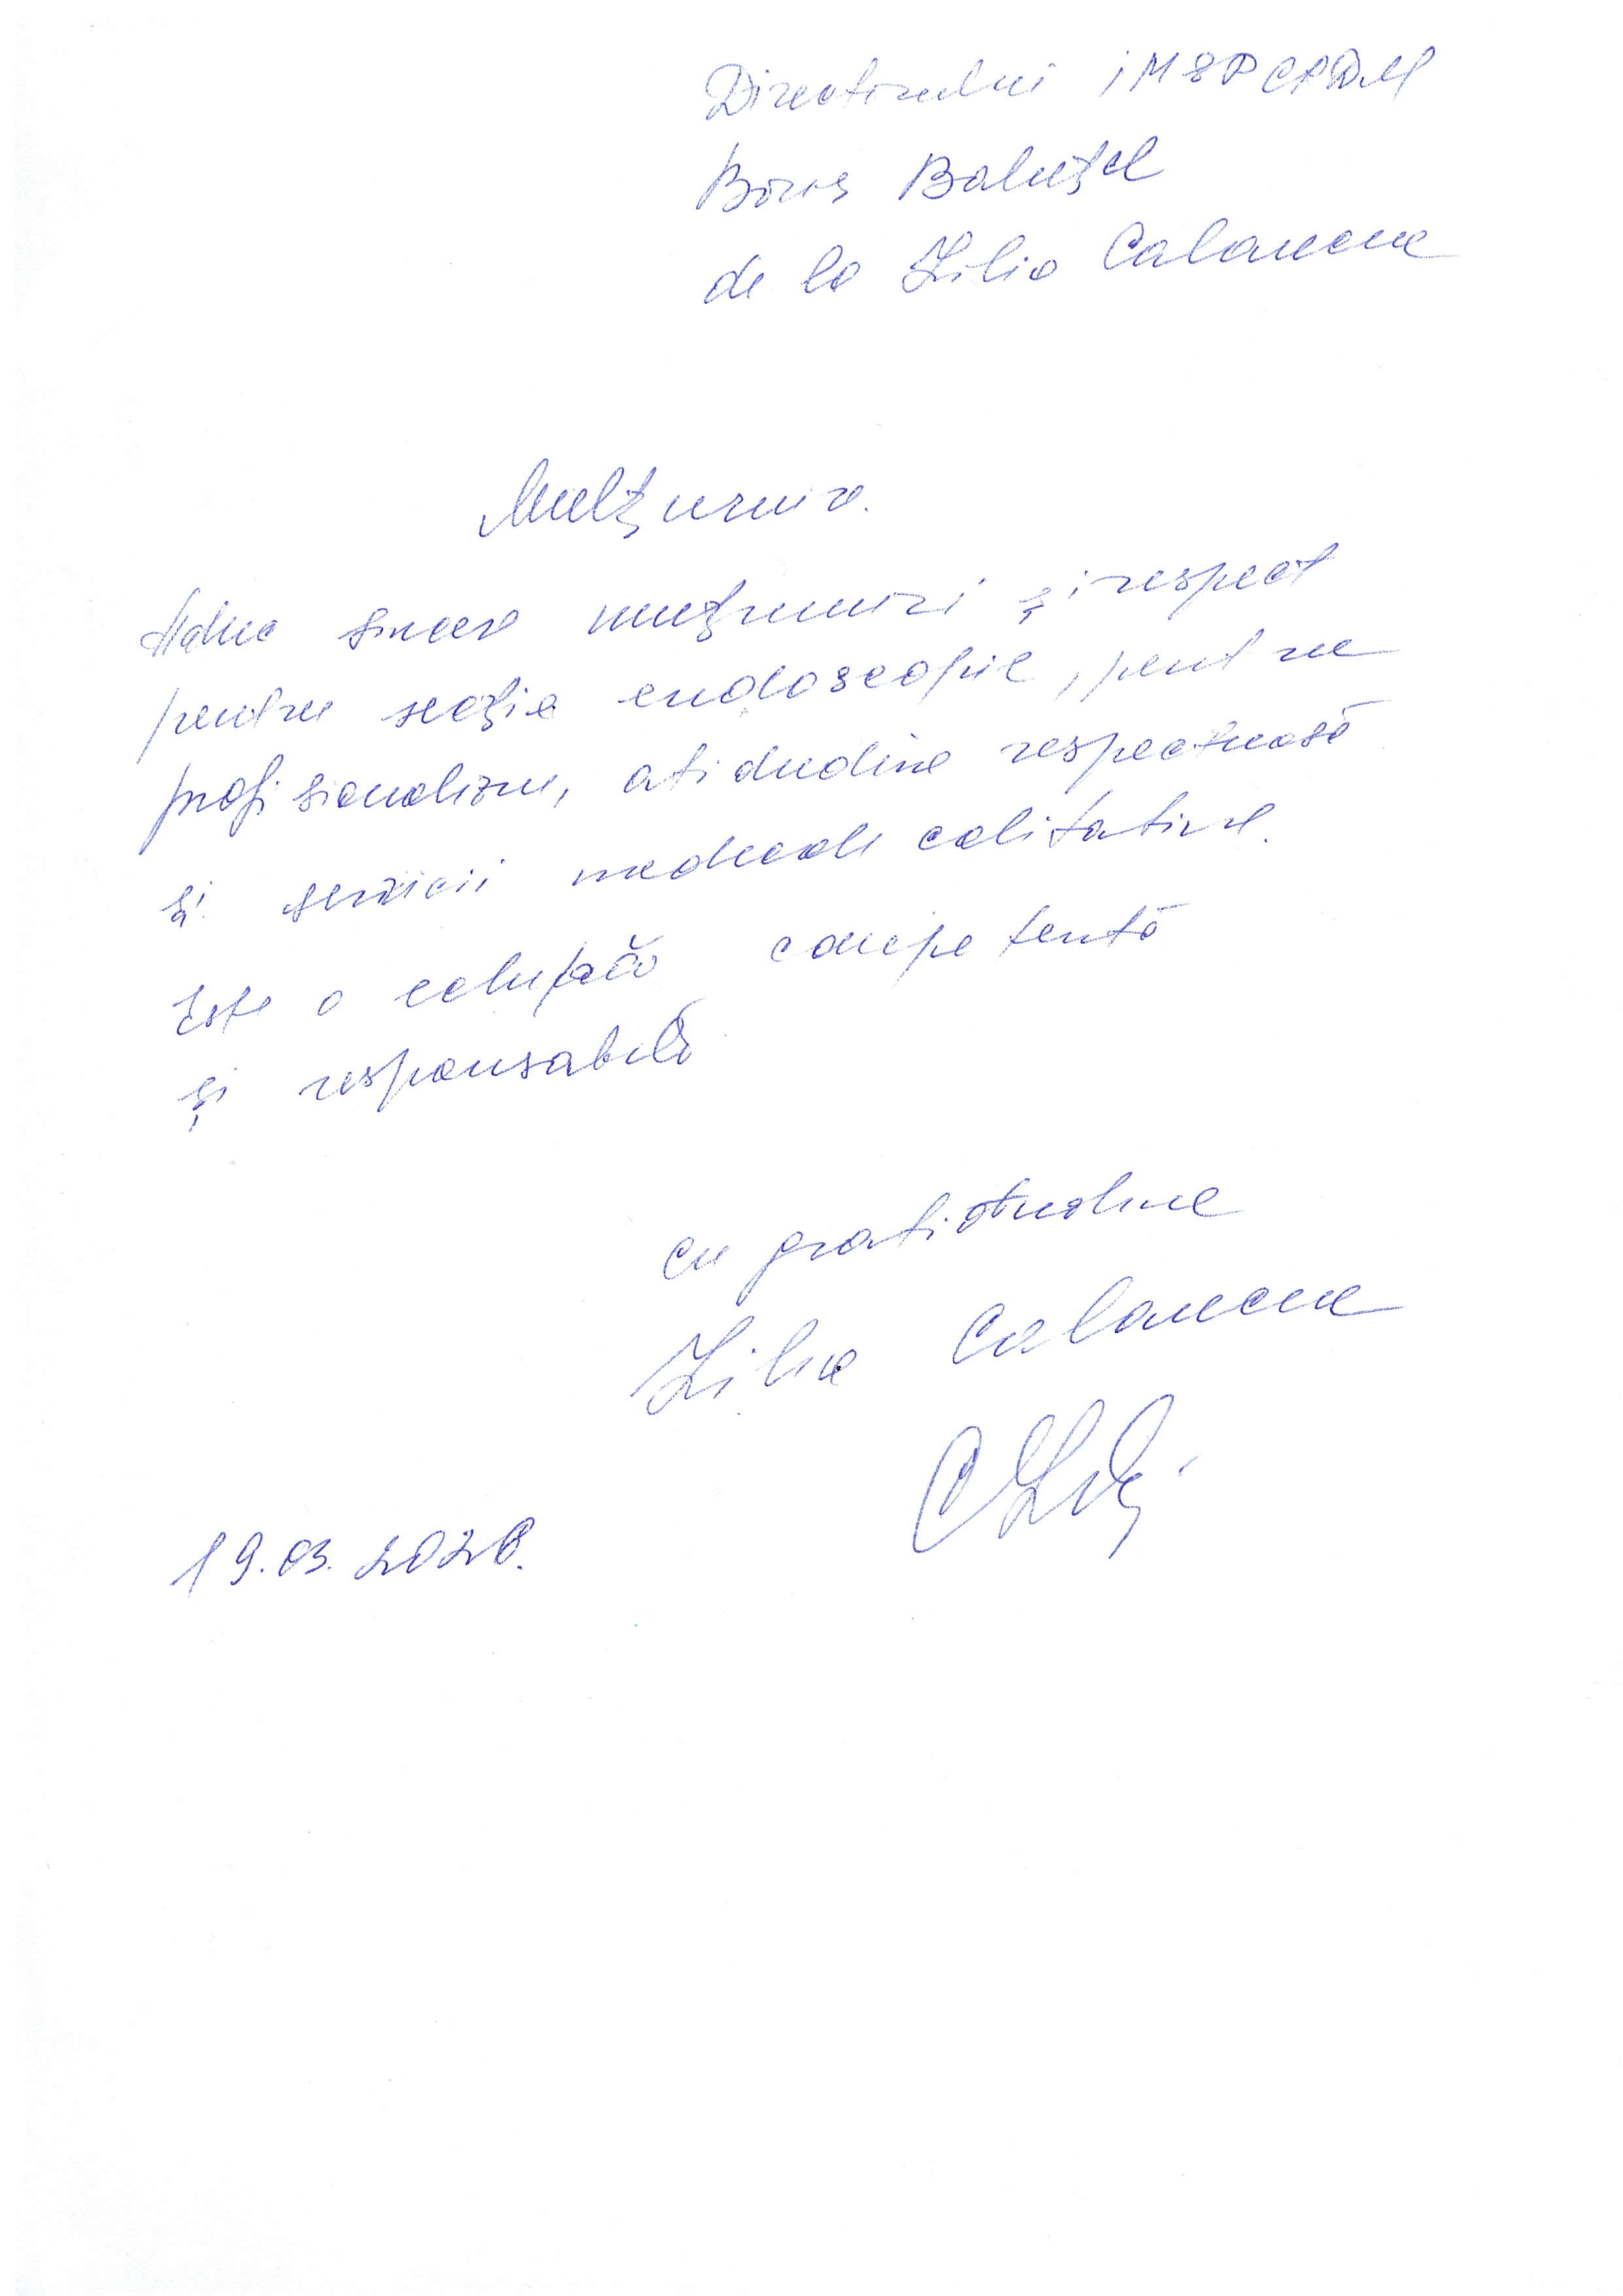 Directorului IMSP CRDM
Boris Baluțel
de la Lilia Calancea
Mulțumire.
Aduc sincere mulțumiri și respect
pentru secția endoscopie, pentru
profisionalizm, atidudine respectuasă
și servicii medicale calitative.
Este o echipă competentă
și responsabilă
cu gratitudine
Lilia Calancea
19.03.2026.